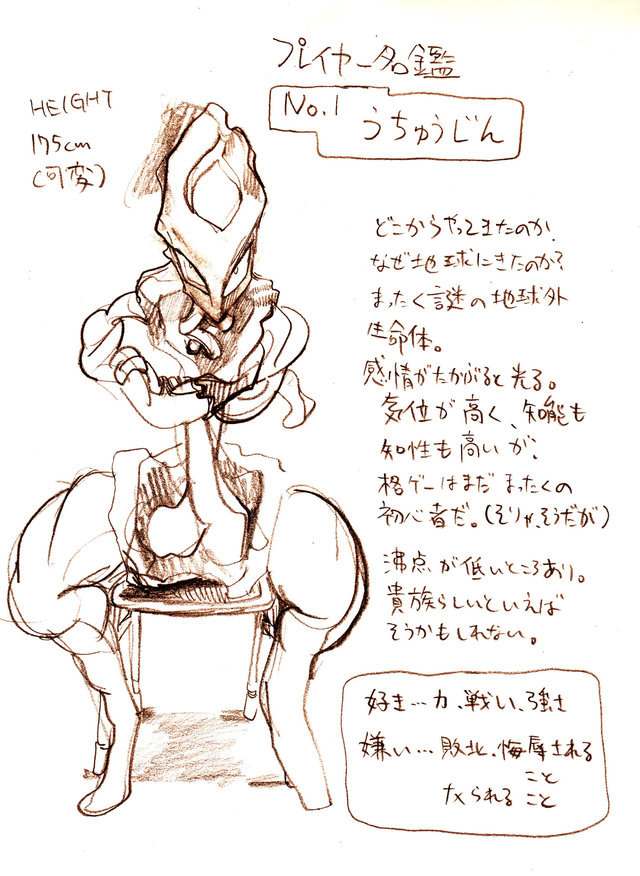 プレイヤー名鑑
No.1
うちゅうじん
HEIGHT
175cm
(可変)
どこからやってきたのか、
なぜ地球にきたのか?
まったく謎の地球外
生命体。
感情がたかぶると光る。
気位が高く、知能も
知性も高いが、
格ゲーはまだまったくの
初心者だ。(そりゃ、そうだが)
沸点が低いところあり。
貴族らしいといえば
そうかもしれない。
好き…力、戦い、強さ
嫌い…敗北、侮辱される
こと
ナメられること